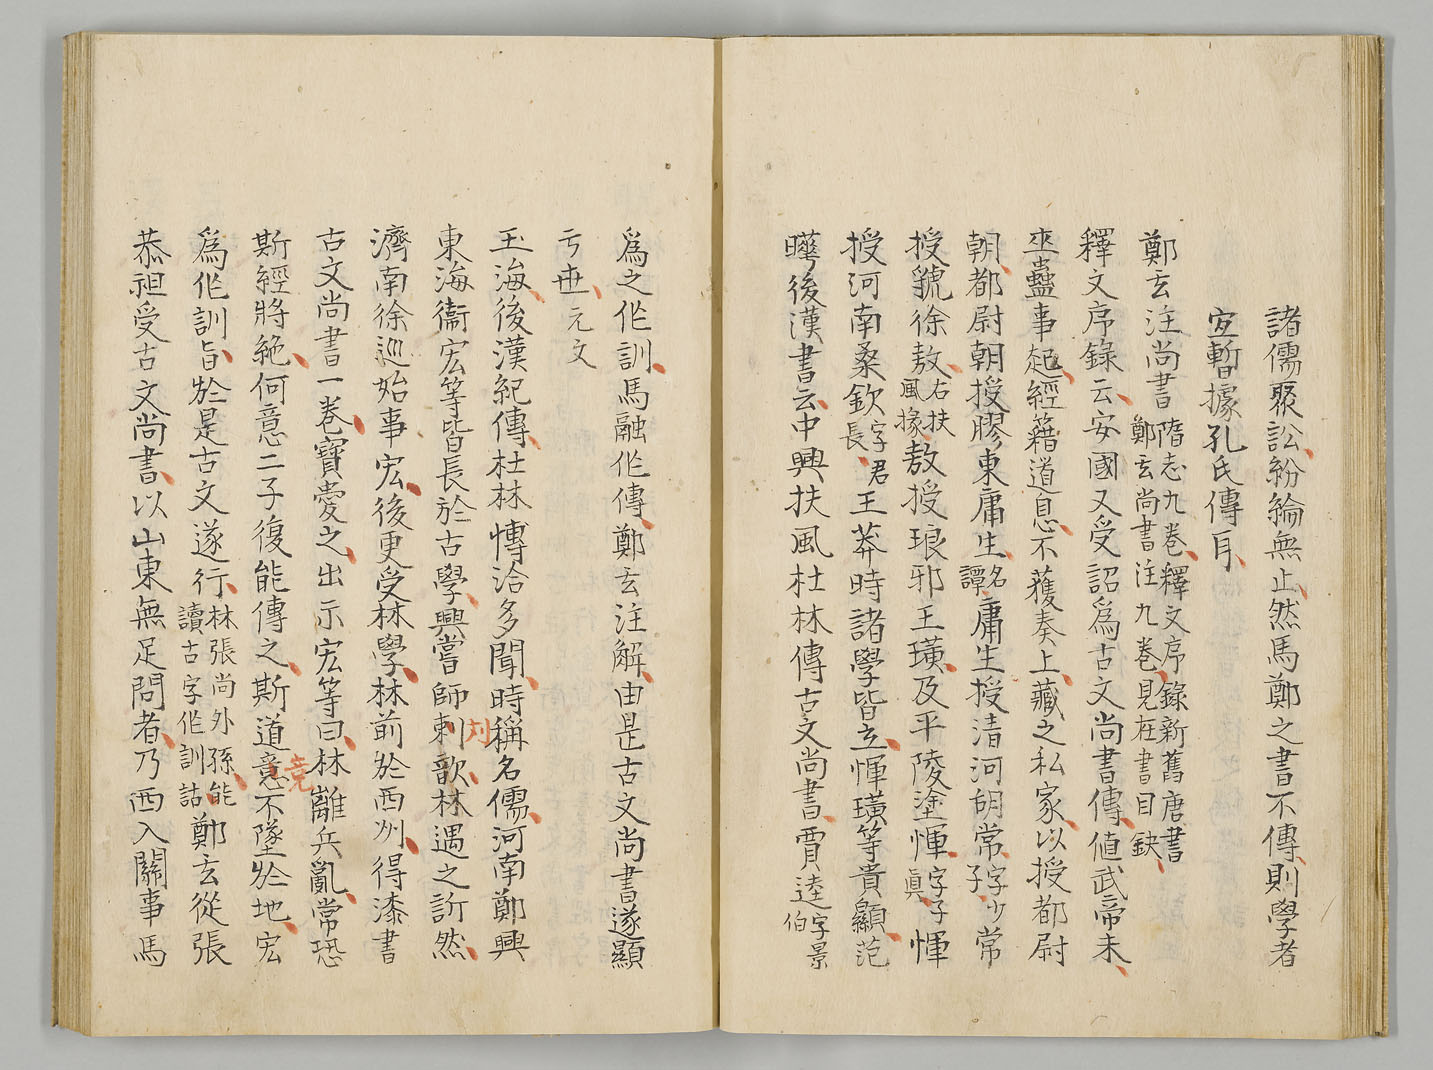 諸儒聚訟紛綸無止然馬鄭之書不傳則學者
宜暫據孔氏傳耳
鄭玄注尚書隋志九卷釋文序錄新舊唐書
鄭玄尚書注九卷見在書目缺
釋文序錄云安國又受詔爲古文尚書傳值武帝末
巫蠱事起經籍道息不獲奏上藏之私家以授都尉
朝都尉朝授膠東庸生名譚庸生授清河胡常字少子常
授虢徐敖右扶風掾敖授琅邪王璜及平陵塗惲字子眞惲
授河南桑欽字君長王莽時諸學皆立惲璜等貴顯范
曄後漢書云中興扶風杜林傳古文尚書賈逵字景伯
爲之作訓馬融作傳鄭玄注解由是古文尚書遂顯
于世元文
玉海後漢紀傳杜林博洽多聞時稱名儒河南鄭興
東海衞宏等皆長於古學興嘗師刺歆林遇之訢然
刘
濟南徐巡始事宏後更受林學林前於西州得漆書
古文尚書一卷寶愛之出示宏等曰林離兵亂常恐
斯經將絶何意二子復能傳之斯道意不墜於地宏
竟
爲作訓旨於是古文遂行林張尚外孫能讀古字作訓詁鄭玄從張
恭祖受古文尚書以山東無足問者乃西入關事馬